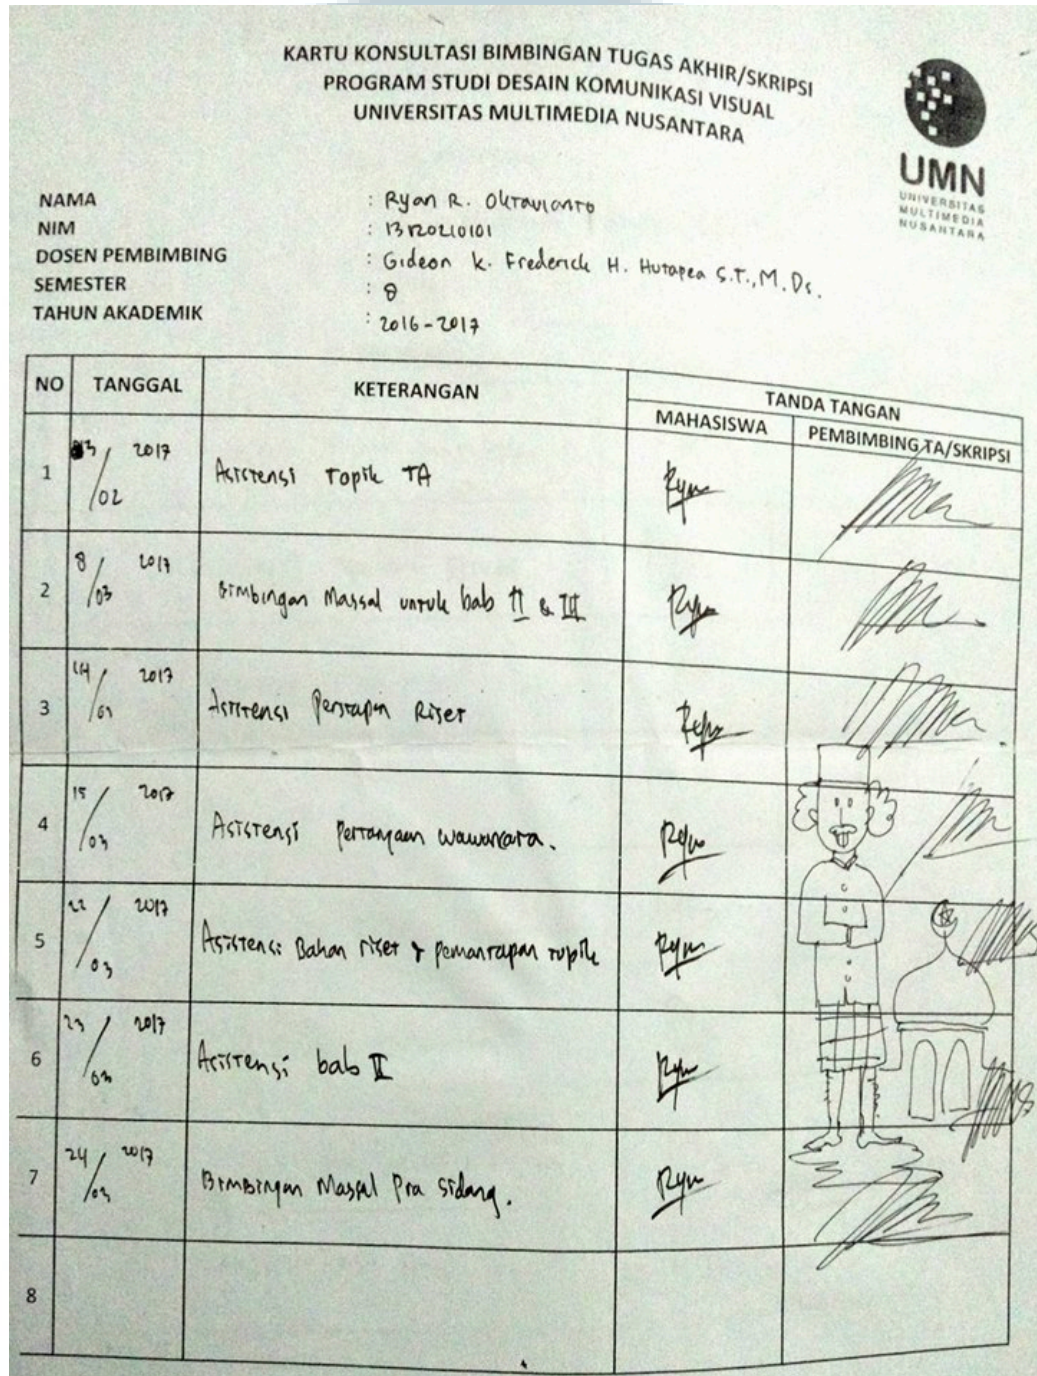 KARTU KONSULTASI BIMBINGAN TUGAS AKHIR/SKRIPSI
PROGRAM STUDI DESAIN KOMUNIKASI VISUAL
UNIVERSITAS MULTIMEDIA NUSANTARA
UMN
UNIVERSITAS
MULTIMEDIA
NUSANTARA
NAMA : Ryan R. Oktavianto
NIM : 13120210101
DOSEN PEMBIMBING : Gideon K. Frederick H. Hutapea S.T., M.Ds.
SEMESTER : 8
TAHUN AKADEMIK : 2016-2017
NO TANGGAL KETERANGAN TANDA TANGAN
MAHASISWA PEMBIMBING TA/SKRIPSI
1 /02 2017 Asistensi Topik TA Ryan
2 8/03 2017 Bimbingan Massal untuk bab II & III Ryan
3 14/03 2017 Asistensi Persiapan Riset Ryan
4 15/03 2017 Asistensi pertanyaan wawancara. Ryan
5 22/03 2017 Asistensi Bahan riset & pemantapan topik Ryan
6 23/03 2017 Asistensi bab II Ryan
7 24/03 2017 Bimbingan Massal Pra sidang. Ryan
8